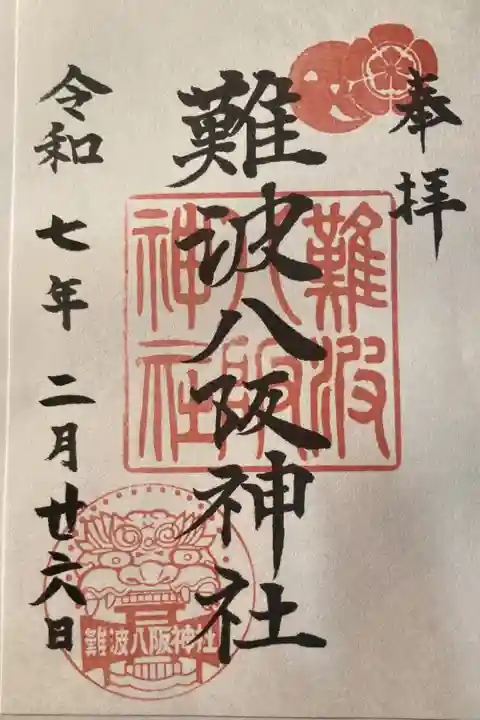 奉拝
難波八阪神社
難波八阪神社
令和七年二月廿六日
難波八阪神社